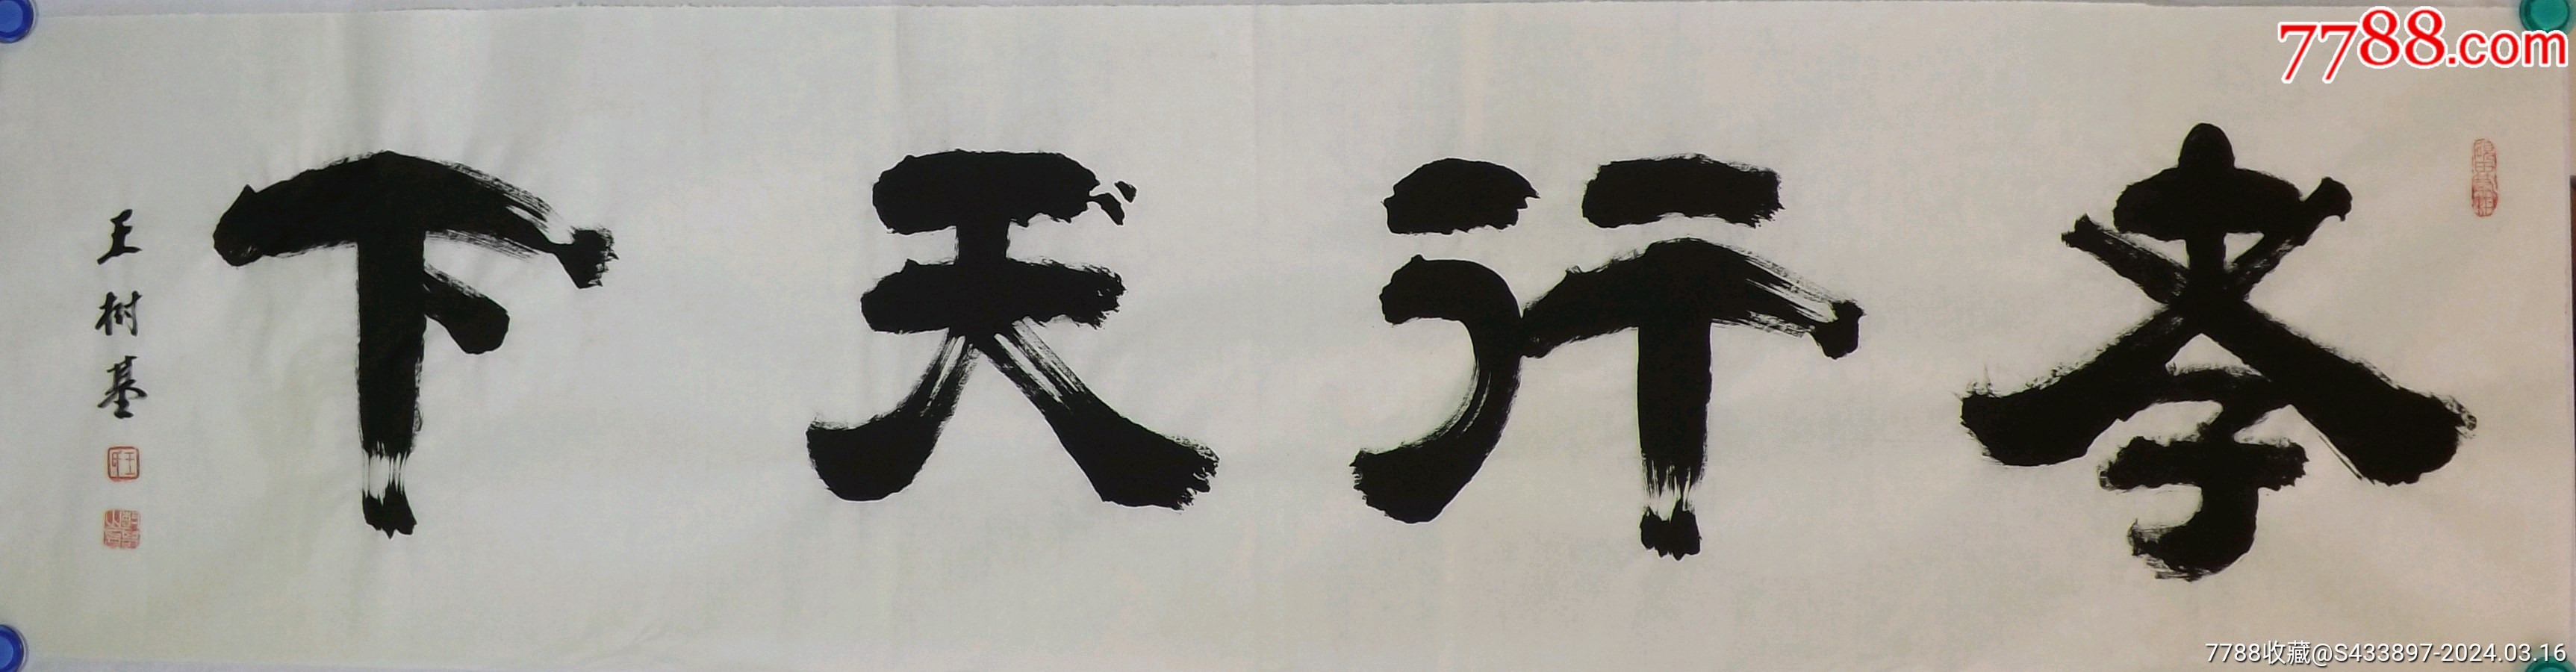 7788.com
孝行天下
王树基
7788收藏@S433897-2024.03.16